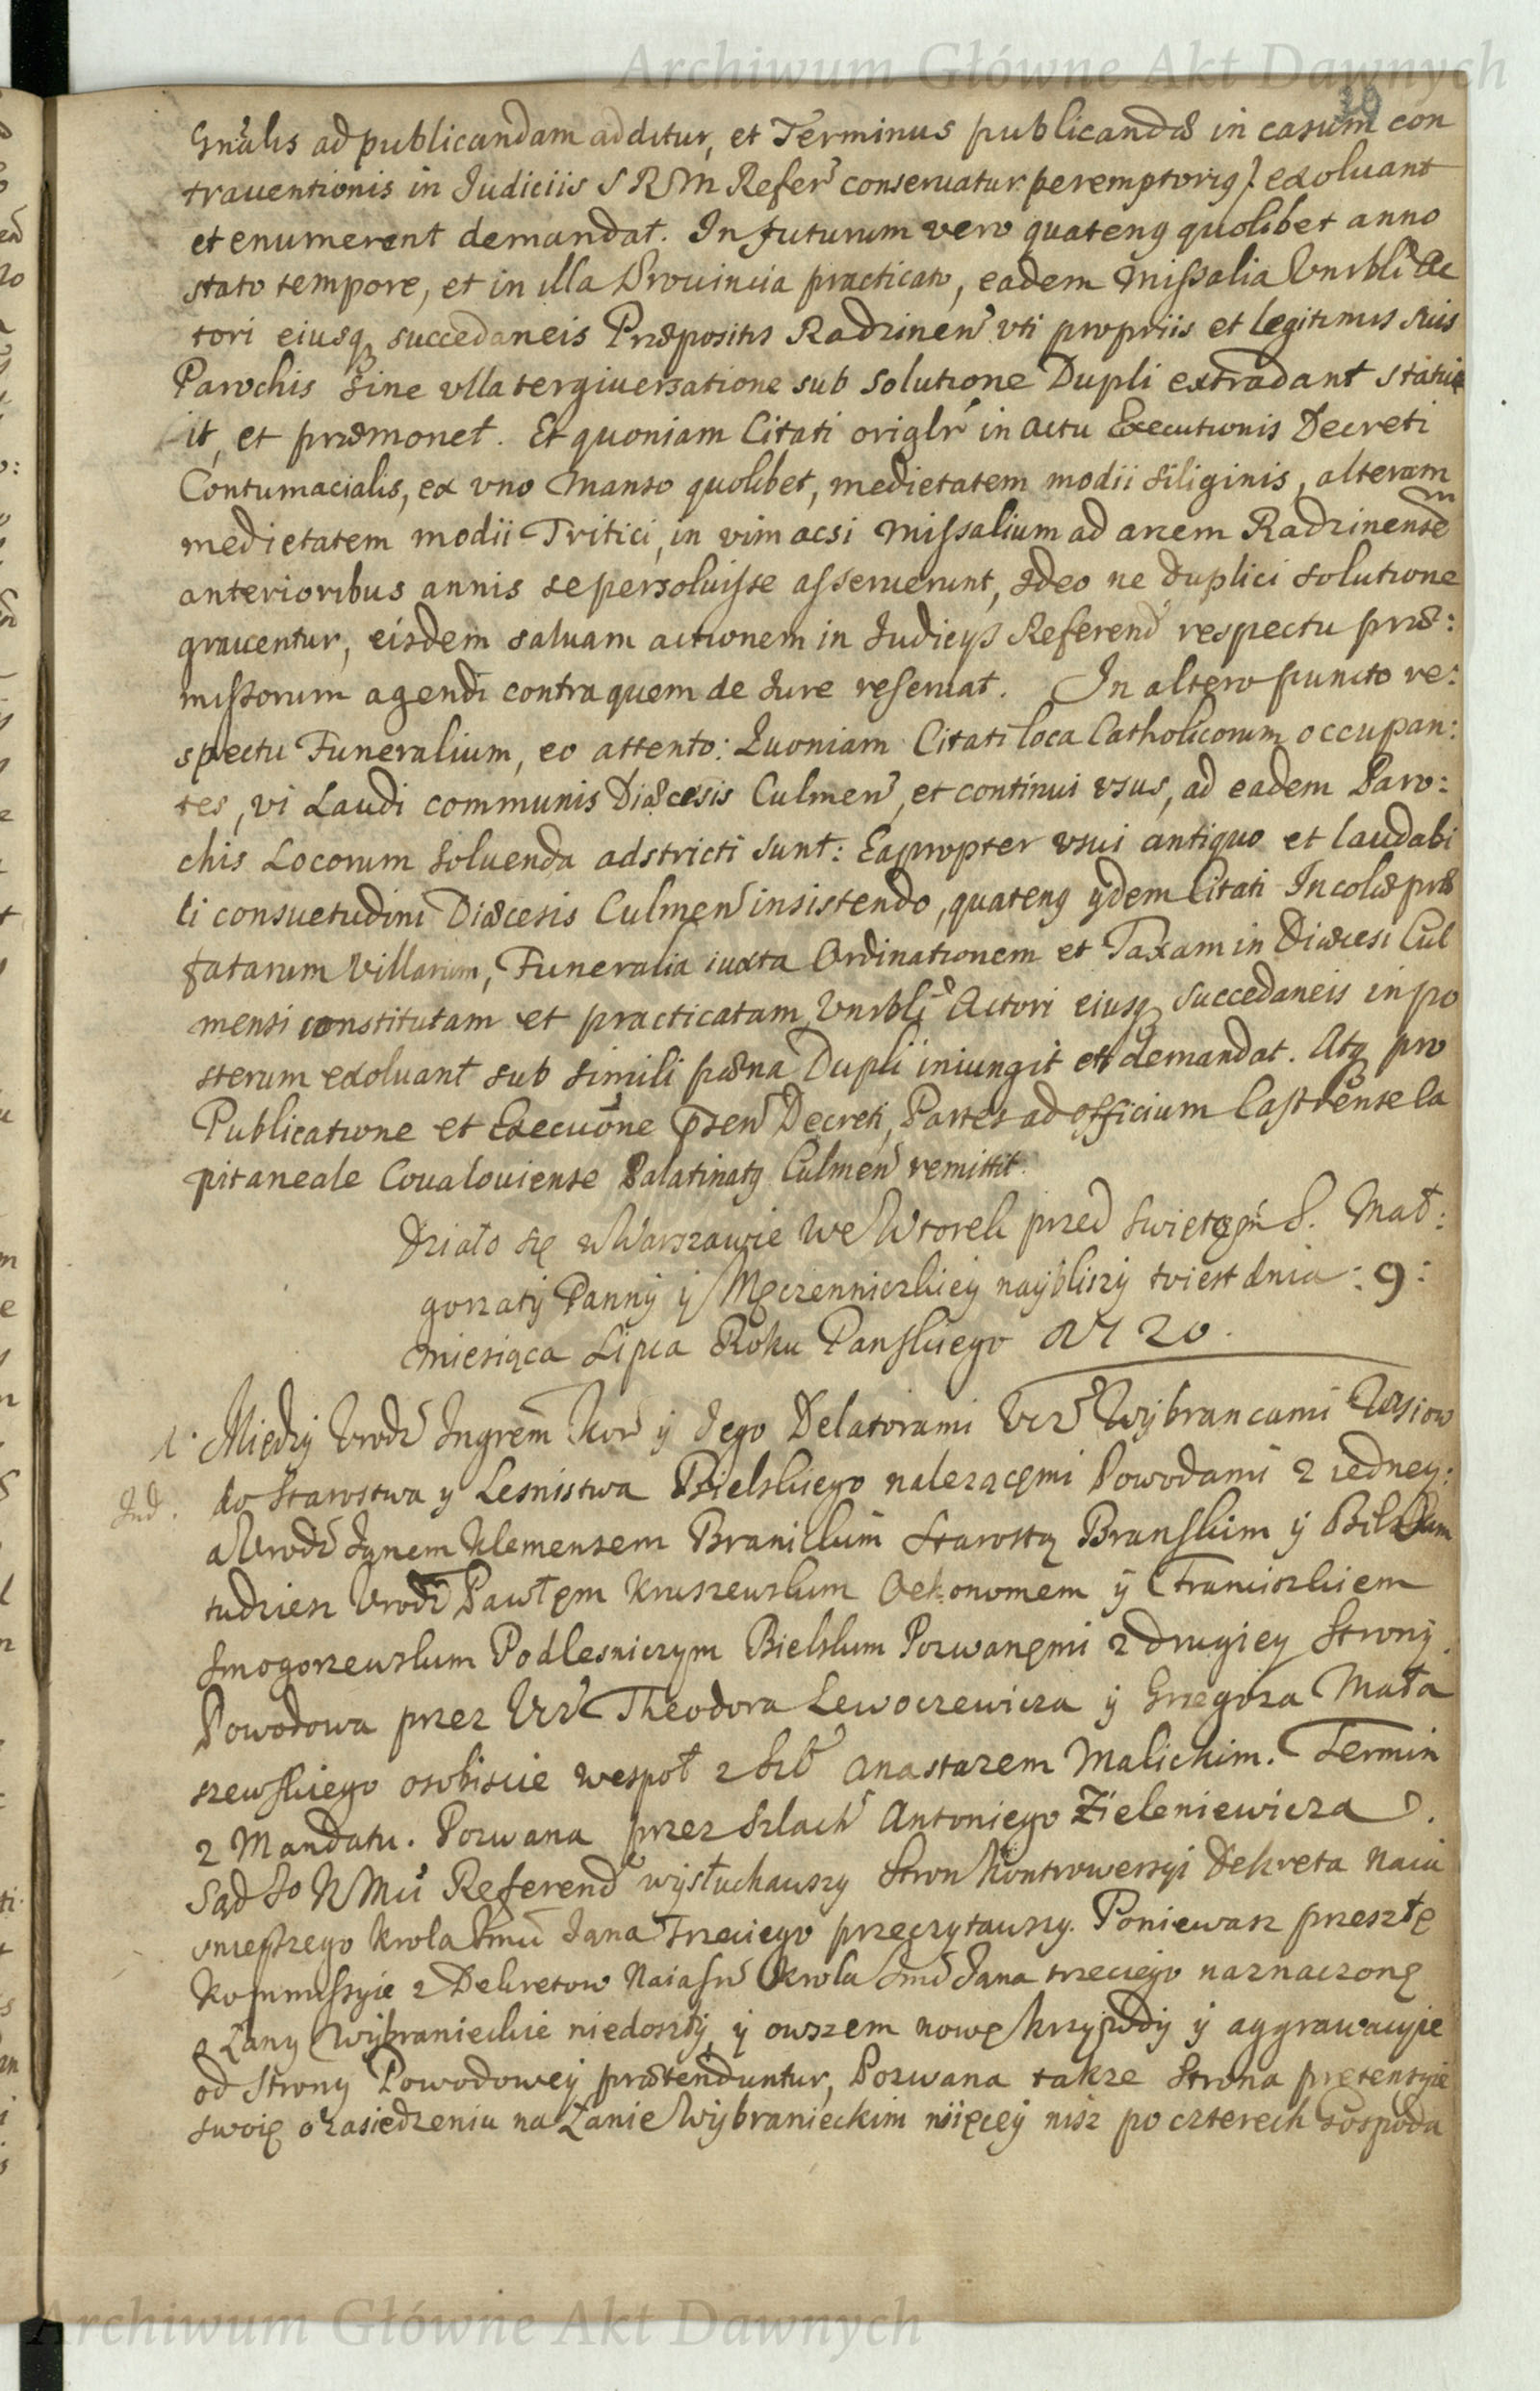 Archiwum Główne Akt Dawnych
Gnalis ad publicandam additur, et Terminus publicandæ in casum con
trauentionis in Judiciis S R M Refer conseruatur peremptorig) exoluant
et enumerent demandat. In futurum vero quateng quolibet anno
stato tempore, et in illa Prouincia practicato, eadem Missalia Vnrbli Ac
tori eiusq succedaneis Præpositis Radzinen vti propriis et legitimis suis
Parochis sine vlla tergiuersatione sub solutione Dupli extradant statu
it, et præmonet. Et quoniam Citati originalr in actu Executionis Decreti
Contumacialis, ex vno Manso quolibet, medietatem modii siliginis, alteram
medietatem modii Tritici, in vim acsi Missalium ad arcem Radzinensem
anterioribus annis se persoluisse asseruerunt, ideo ne duplici solutione
grauentur, eisdem saluam actionem in Judicys Referend respectu præ:
missorum agendi contra quem de Jure reseruat. In altero puncto re:
spectu Funeralium, eo attento: Quoniam Citati loca Catholicorum occupan:
tes, vi Laudi communis Diæcesis Culmen, et continui vsus, ad eadem Paro:
chis Locorum soluenda adstricti sunt: Eapropter vsui antiquo et laudabi
li consuetudini Diæcesis Culmen insistendo, quateng ydem Citati Incolæ præ
fatarum Villarum, Funeralia iuxta Ordinationem et Taxam in Diæcesi Cul
mensi constitutam et practicatam Vnrbli Actori eiusq succedaneis in po
sterum exoluant sub simili pæna Dupli iniungit et demandat. Atq pro
Publicatione et Execuone pnsen Decreti, Partes ad officium Castrense Ca
pitaneale Coualouiense Palatinatg Culmen remittit.
Działo się w Warszawie we Wtorek przed swiętem S. Mał:
gorzaty Panny y Męczenniczkiey naybliszy to iest dnia: 9:
miesiąca Lipca Roku Panskiego 1720.
1. Między Vrodz Ingrem Kor y Jego Delatorami Vcz Wybrancami Zwsiow
Jnd. do Starostwa y Lesnistwa Bielskiego nalezącęmi Powodami z iedney:
a Vrodz Janem Klemensem Branickim Starostą Branskim y Bielskim
tudziesz Vrodz Pawłęm Kruszewskim Oekonomem y Franciszkiem
Smogorzewskim Podlesniczym Bielskim Pozwanęmi z drugiey Strony
Powodowa przez Vcz Theodora Lewoczewicza y Grzegorza Mała
szewskiego osobiscie wespoł z Szl Anastazem Malickim. Termin
z Mandatu. Pozwana przez Szlach Antoniego Zieleniewicza.
Sąd Jo K Mci Referend wysłuchawszy Stron Kontrowersyi Dekreta Naia
snieyszego Krola Jmci Jana Trzeciego przeczytawszy. Poniewasz przeszłę
Kommissyie z Dekretow Naiasn Krola Jmci Jana trzeciego naznaczonę
o Łany Wybranieckie niedoszły, y owszem nowę krzywdy y aggrawacyie
od Strony Powodowey prætenduntur, Pozwana takze Strona prętensyie
swoię o zasiedzeniu na Łanie Wybranieckim więcey nisz po czterech Gospoda
Archiwum Główne Akt Dawnych